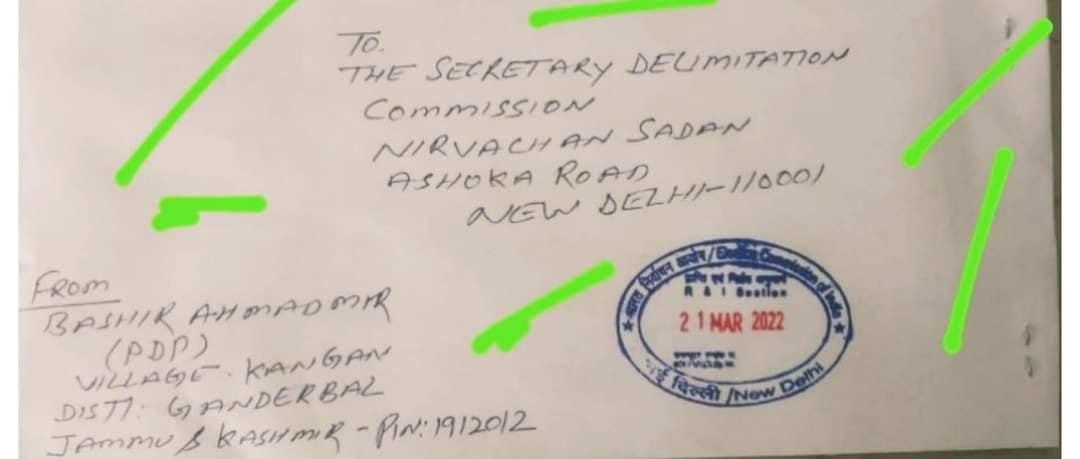 To.
THE SECRETARY DELIMITATION
COMMISSION
NIRVACHAN SADAN
ASHOKA ROAD
NEW DELHI-110001
From
BASHIR AHMAD MIR
(PDP)
VILLAGE. KANGAN
DISTT: GANDERBAL
JAMMU & KASHMIR - PIN: 1912012
भारत निर्वाचन आयोग/Election Commission of India
R & I Section
21 MAR 2022
नई दिल्ली/New Delhi